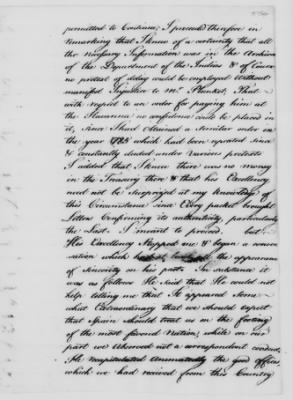 permitted to Continue; I proceeded therefore in
remarking that I knew of a certainty that all
the necessary Information was in the Archives
of the Department of the Indies & of Course
no pretext of delay could be employed without
manifest Injustice to Mr. Plunket; That
with respect to an order for paying him at
the Havanna no confidence could be placed in
it, since I had obtained a similar order in
the year 1783 which had been repeated since
& constantly eluded under various pretexts
I added that I knew there was no money
in the Treasury then & that his Excellency
need not be surprized at my knowledge of
this Circumstance since Every packet brought
Letters Confirming its authenticity, particularly
the Last. I meant to proceed. but
His Excellency Stopped me & began a conver
sation which the appearance
of sincerity on his part. In substance it
was as follows He said that He could not
help telling me that It appeared Some
what Extraordinary that we should expect
that Spain should treat us on the footing
of the most favored Nation; while on our
part we observed not a correspondent conduct,
He recapitulated the good offices
which we had received from this Country